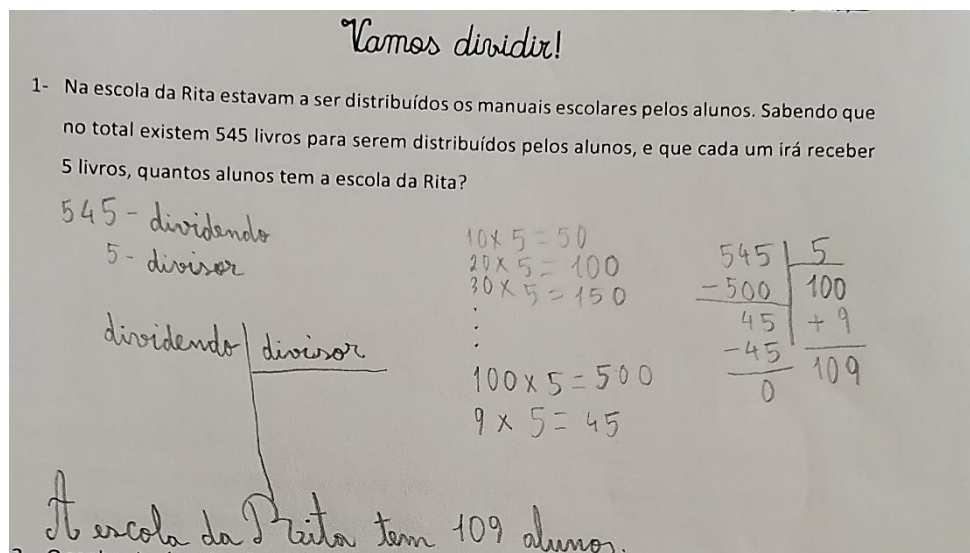 Vamos dividir!
1- Na escola da Rita estavam a ser distribuídos os manuais escolares pelos alunos. Sabendo que
no total existem 545 livros para serem distribuídos pelos alunos, e que cada um irá receber
5 livros, quantos alunos tem a escola da Rita?
545 - dividendo
5 - divisor
dividendo divisor
10 x 5 = 50
20 x 5 = 100
30 x 5 = 150
.
.
.
100 x 5 = 500
9 x 5 = 45
545 | 5
-500 | 100
45 | + 9
-45 109
0
A escola da Rita tem 109 alunos.